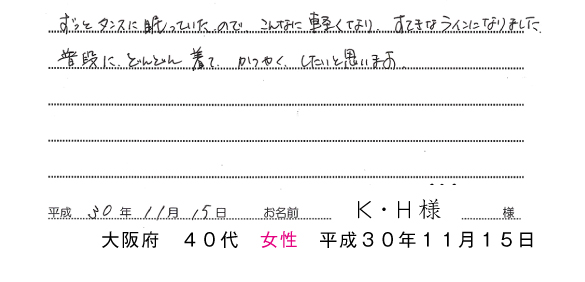 ずっとタンスに眠っていたので、こんなに軽くなり、すてきなラインになりました。
普段に、どんどん着て、かつやく、したいと思います。
平成 30年 11月 15日 お名前 K・H様 様
大阪府 40代 女性 平成30年11月15日